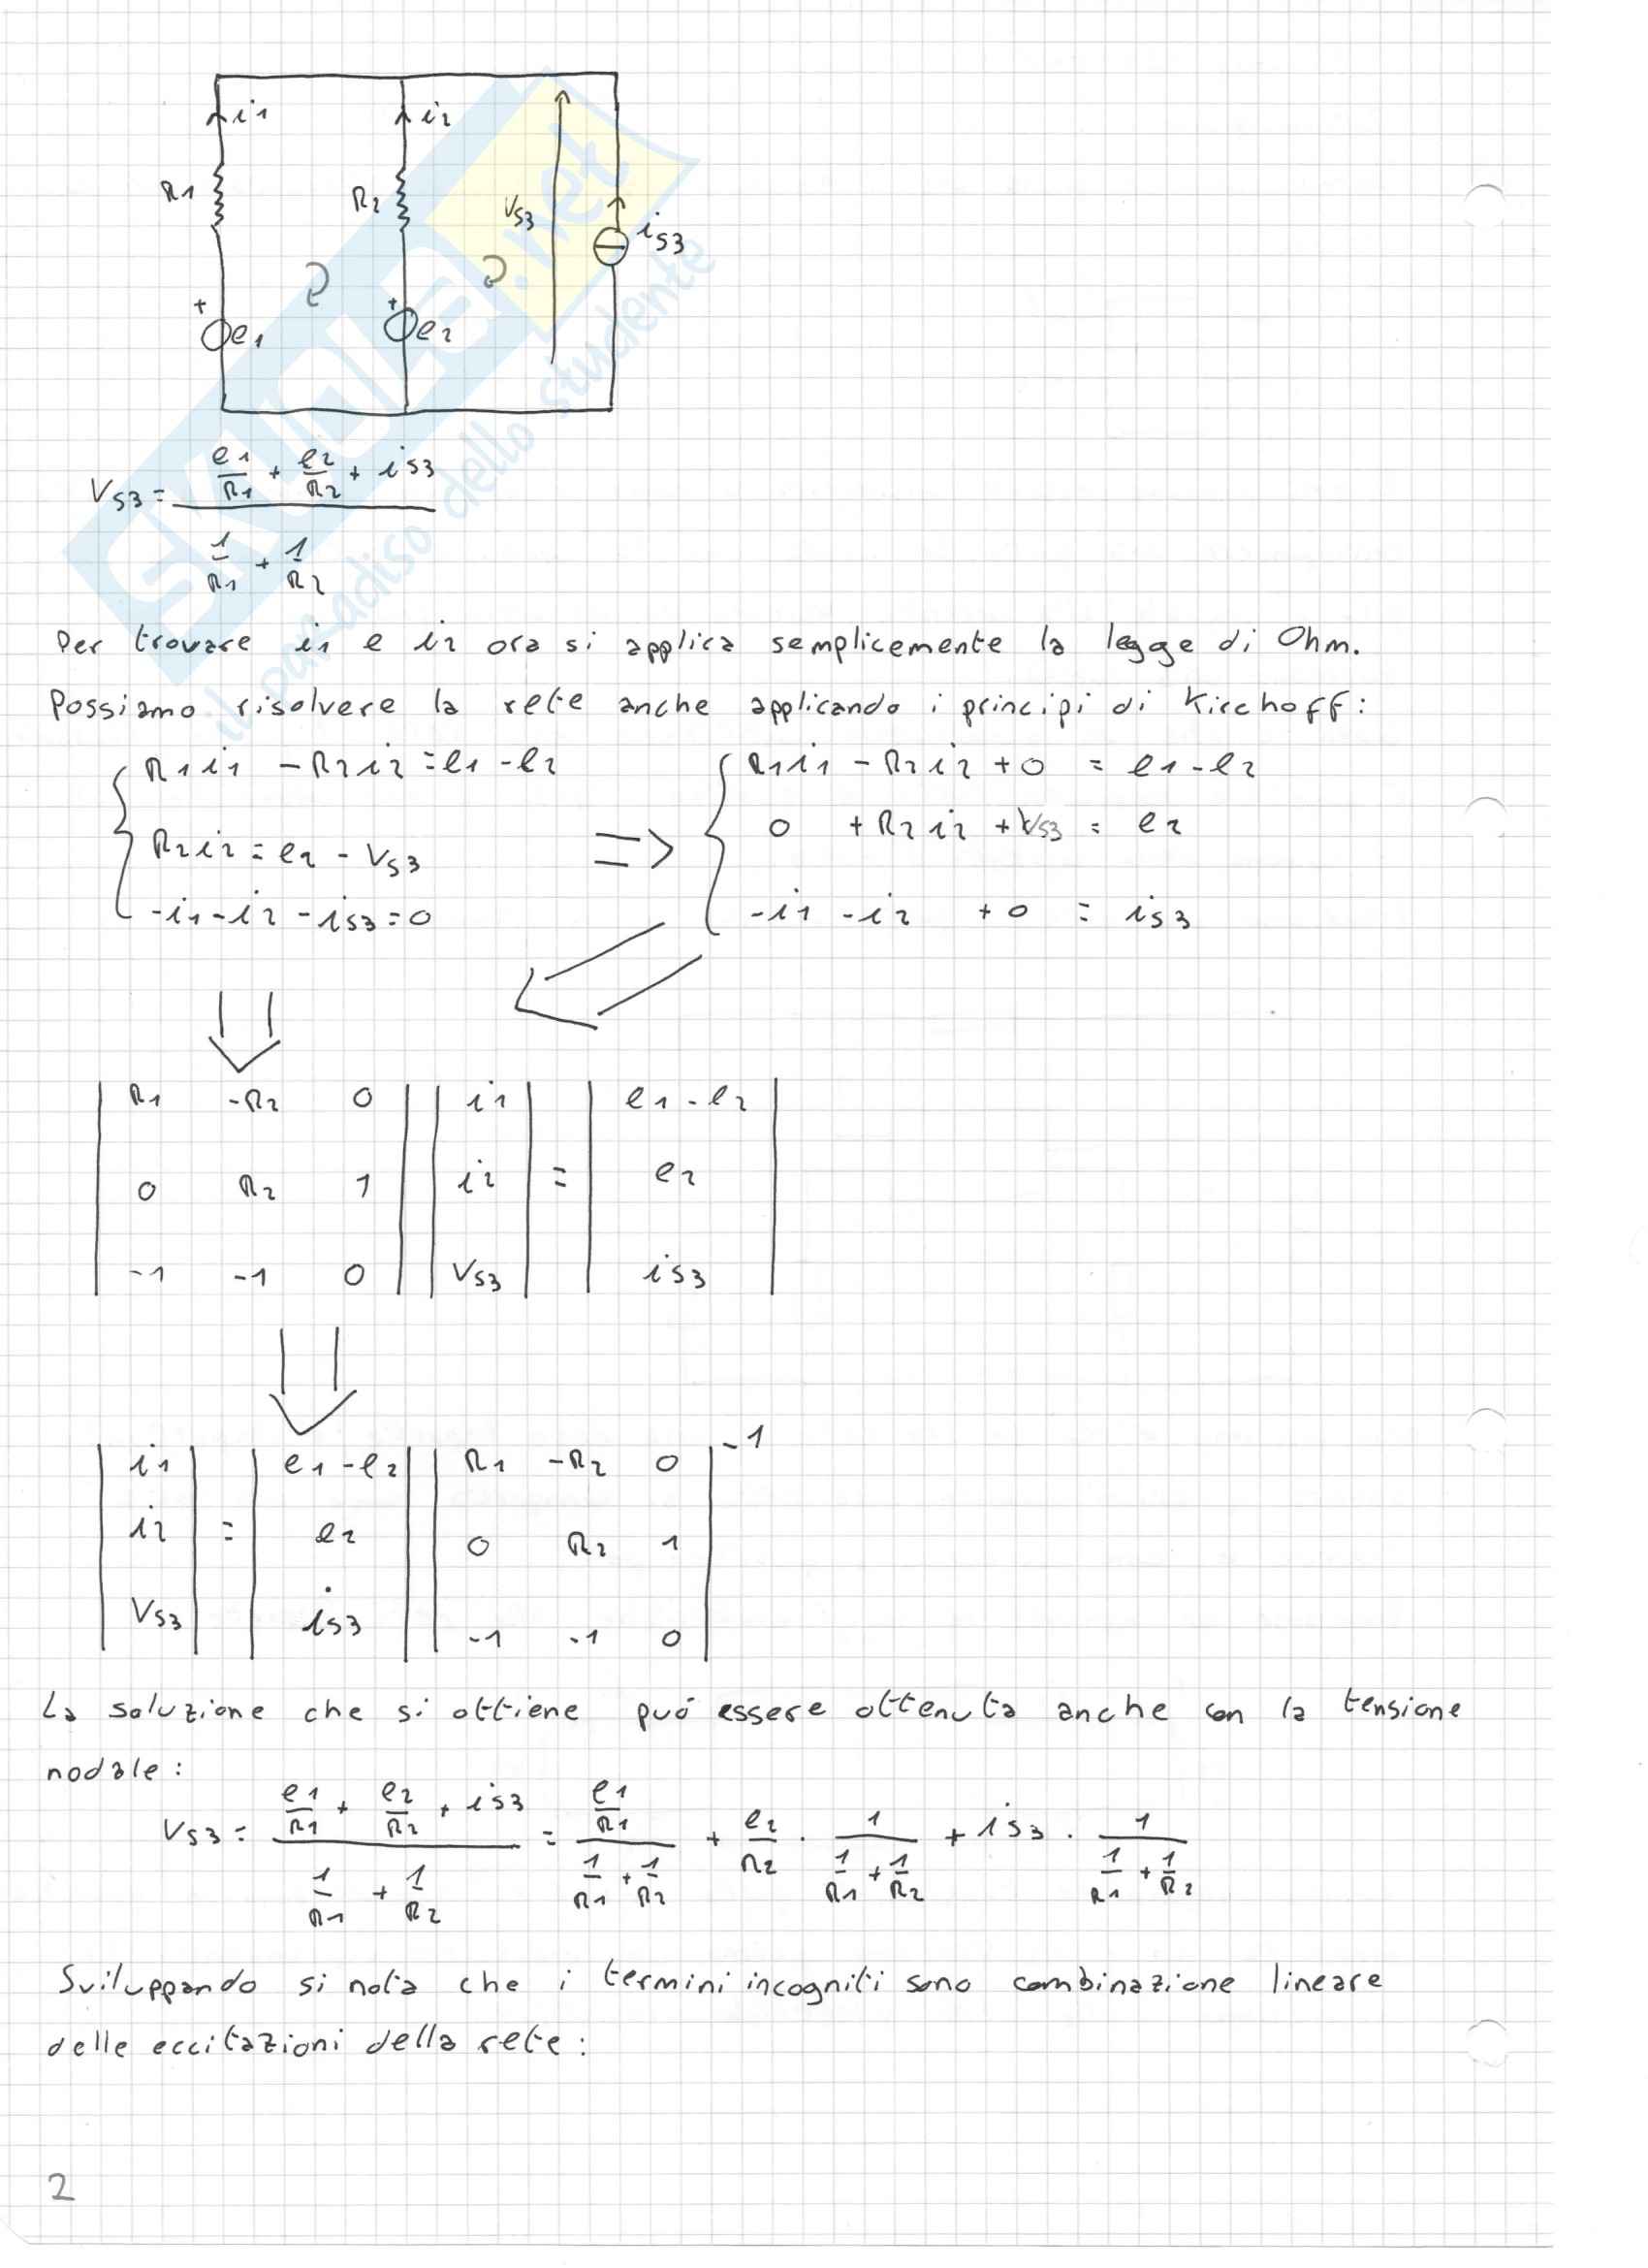 i1 i2
R1 R2 Vs3 is3
+ e1 + e2
SKUOLA.net
il paradiso dello studente
Vs3 = (e1/R1 + e2/R2 + is3) / (1/R1 + 1/R2)
Per trovare i1 e i2 ora si applica semplicemente la legge di Ohm.
Possiamo risolvere la rete anche applicando i principi di Kirchoff:
R1i1 - R2i2 = e1 - e2 R1i1 - R2i2 + 0 = e1 - e2
R2i2 = e2 - Vs3 => 0 + R2i2 + Vs3 = e2
-i1 - i2 - is3 = 0 -i1 - i2 + 0 = is3
| R1 -R2 0 | | i1 | | e1 - e2 |
| 0 R2 1 | | i2 | = | e2 |
| -1 -1 0 | | Vs3 | | is3 |
| i1 | | e1 - e2 | | R1 -R2 0 | -1
| i2 | = | e2 | | 0 R2 1 |
| Vs3 | | is3 | | -1 -1 0 |
La soluzione che si ottiene può essere ottenuta anche con la tensione
nodale:
Vs3 = (e1/R1 + e2/R2 + is3) / (1/R1 + 1/R2) = (e1/R1) / (1/R1 + 1/R2) + e2/R2 · 1 / (1/R1 + 1/R2) + is3 · 1 / (1/R1 + 1/R2)
Sviluppando si nota che i termini incogniti sono combinazione lineare
delle eccitazioni della rete:
2